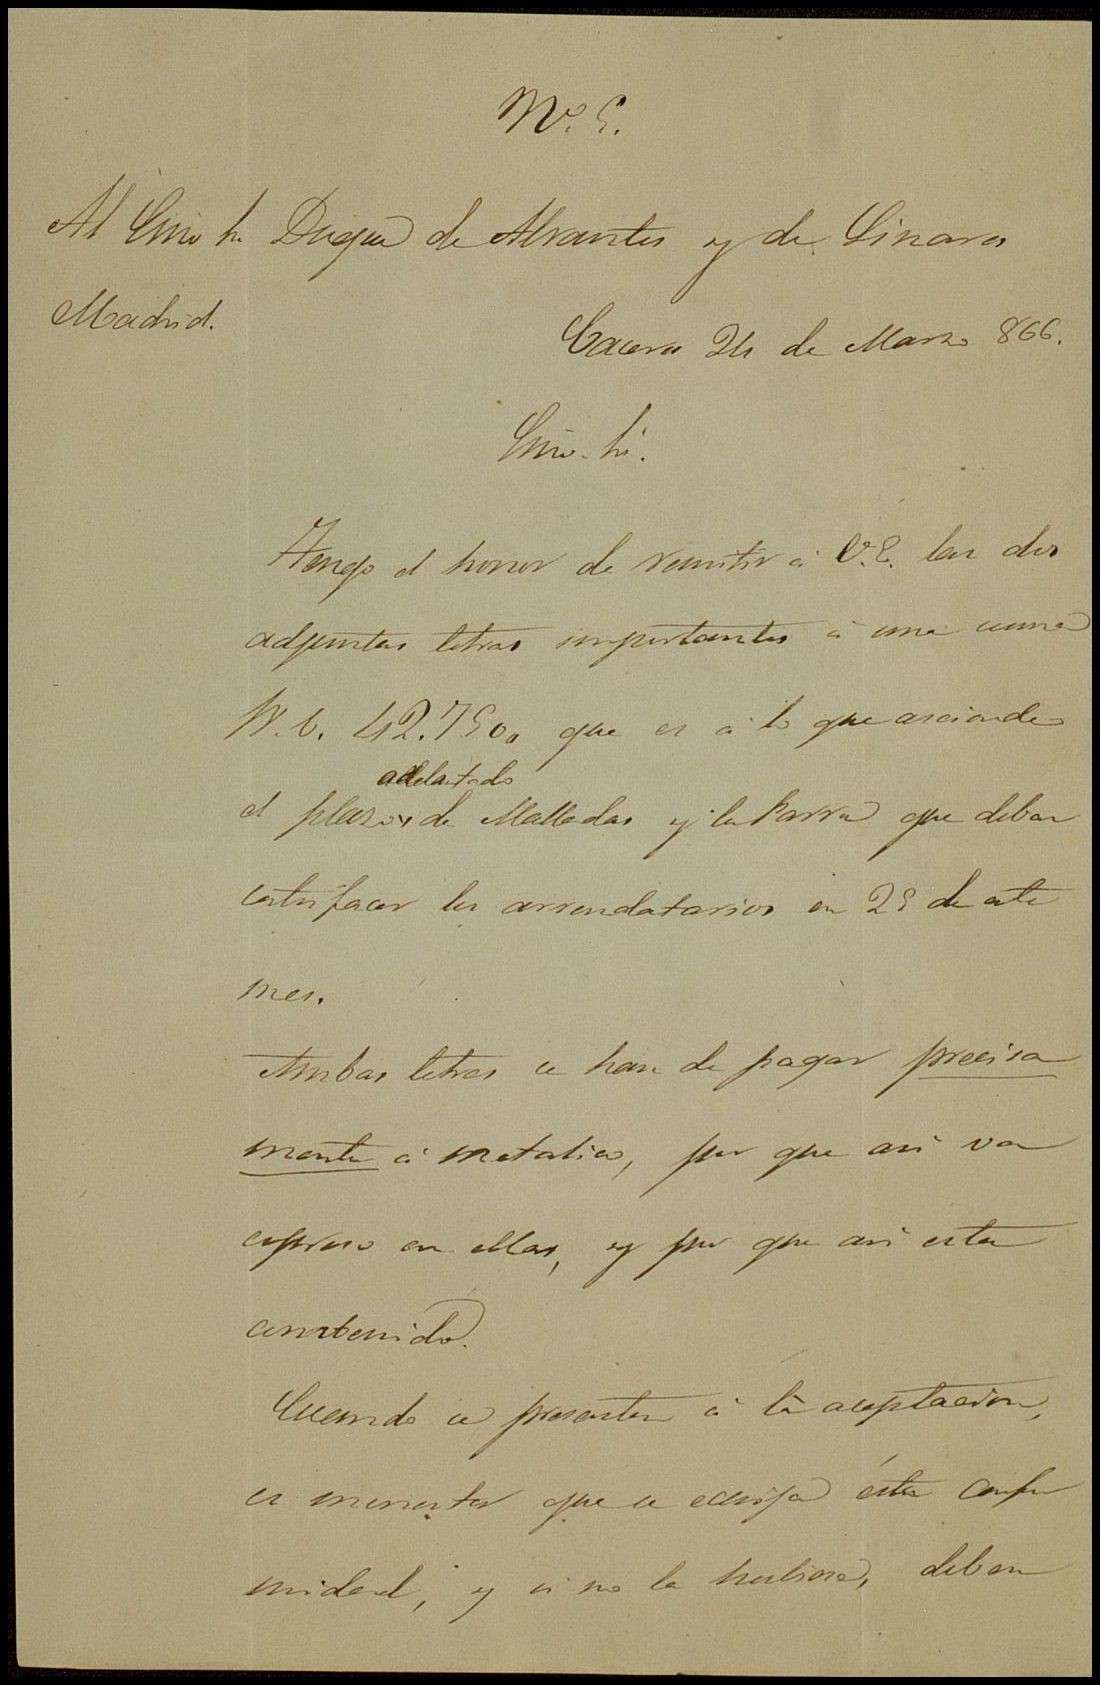 Nº. 5.
Al Exmo Sr. Duque de Abrantes y de Linares
Madrid.
Caceres 24 de Marzo 866.
Exmo. Sr.
Tengo el honor de remitir á V.E. las dos
adjuntas letras importantes á una suma
R.V. 42.750, que es á lo que asciende
adelantado
el plazo de Malladas y la Parra que deben
satisfacer los arrendatarios en 25 de este
mes.
Ambas letras se han de pagar precisa
mente á metalico, por que asi va
espreso en ellas, y por que asi esta
combenido.
Cuando se presenten á la aceptacion,
es menester que se ecsija ésta confor
midad, y si no la hubiese, deben